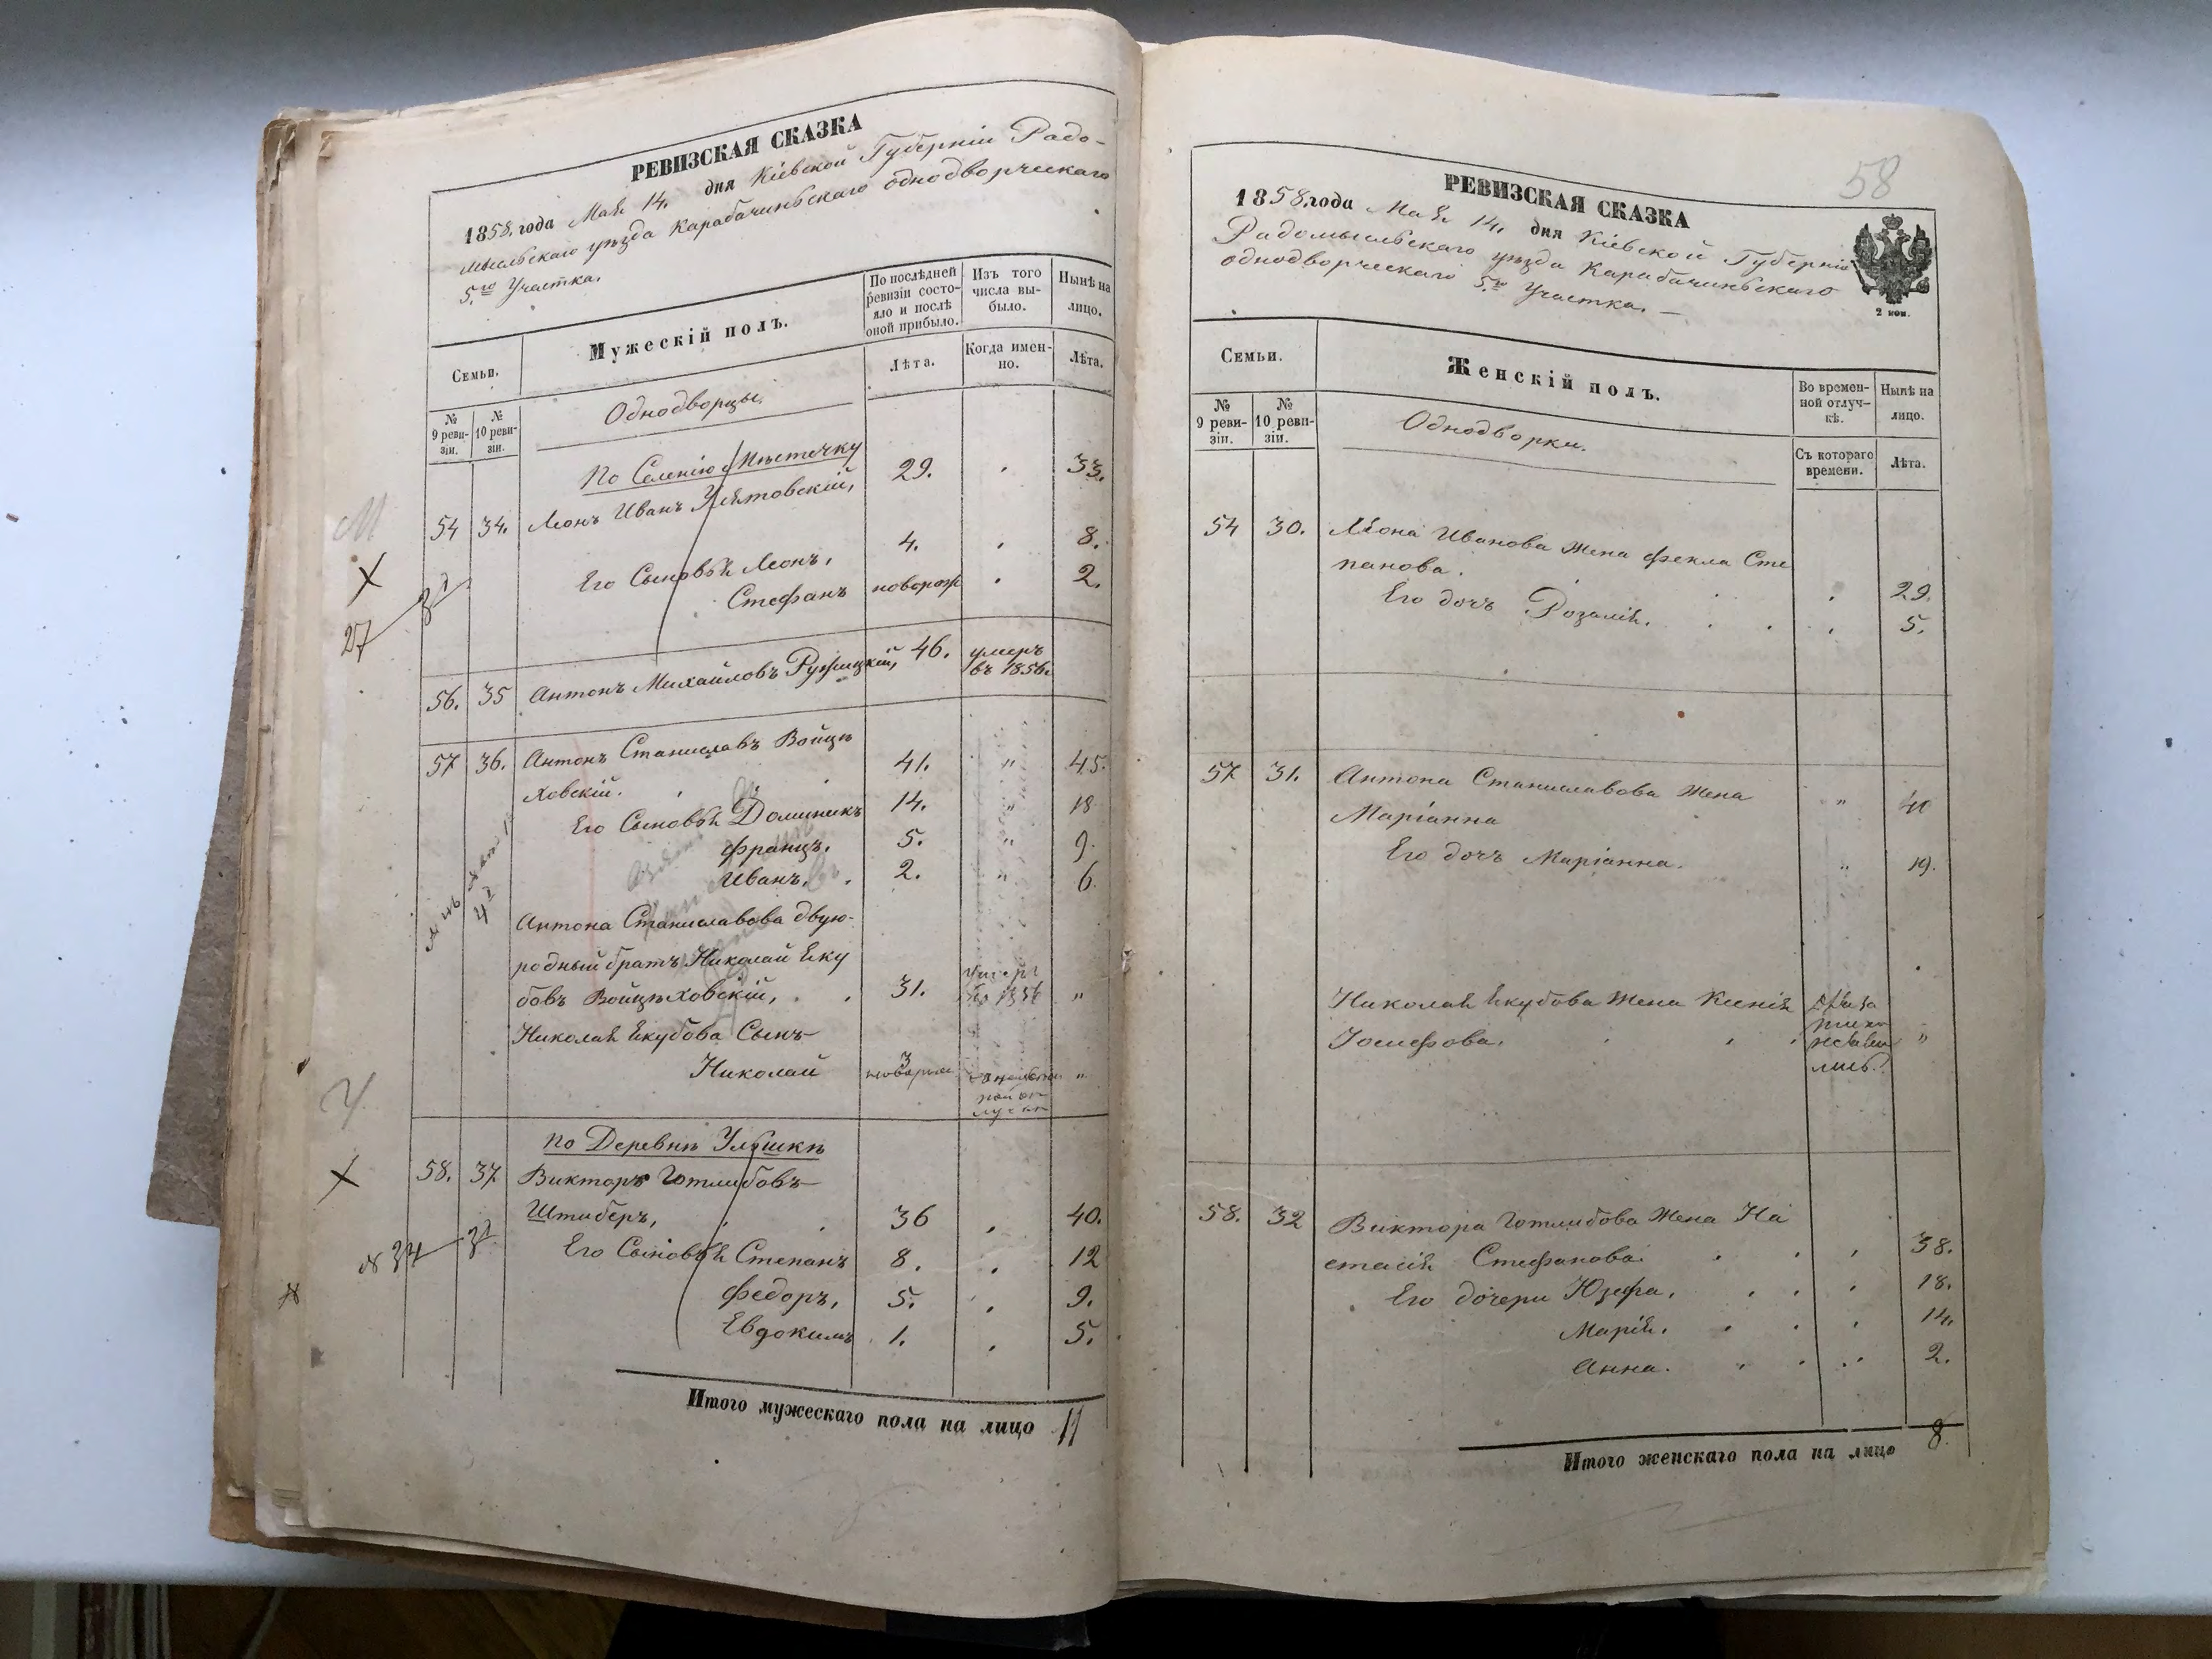 РЕВИЗСКАЯ СКАЗКА
1858. года Мая 14. дня Кіевской Губерніи Радо-
мысльскаго уѣзда Карабачинскаго однодворческаго
5.го Участка.
Семьи.
Мужескій полъ.
По послѣдней ревизіи состо-
яло и послѣ
оной прибыло.
Изъ того
числа вы-
было.
Нынѣ на
лицо.
Лѣта.
Когда имен-
но.
Лѣта.
№
9 реви-
зіи.
№
10 реви-
зіи.
Однодворцы.
По Селенію Мѣстечку
54 34. Леонъ Иванъ 29. 33.
Его Сыновья Леонъ, 4. 8.
Стефанъ новорож 2.
27
56. 35 Антонъ Михайловъ Ружицкій, 46. умеръ
въ 1856.
57 36. Антонъ Станиславъ Войцѣ
ховскій. 41. " 45.
Его Сыновья Доминикъ 14. " 18
Францъ. 5. " 9.
Иванъ. 2. " 6.
Антона Станиславова двую-
родный братъ Николай Яку
бовъ Войцѣховскій, 31. умеръ "
Николая Якубова Сынъ
Николай 3 "
по Деревнѣ
58. 37 Викторъ Готлибовъ
Штиберъ, 36 40.
Его Сыновья Степанъ 8. 12
Федоръ, 5. 9.
Евдокимъ 1. 5.
Итого мужескаго пола на лицо 11
58
РЕВИЗСКАЯ СКАЗКА
1858. года Мая 14. дня Кіевской Губерніи
Радомысльскаго уѣзда Карабачинскаго
однодворческаго 5.го Участка.
2 коп.
Семьи.
Женскій полъ.
Во времен-
ной отлуч-
кѣ.
Нынѣ на
лицо.
Съ котораго
времени.
Лѣта.
№
9 реви-
зіи.
№
10 реви-
зіи.
Однодворки.
54 30. Леона Иванова жена Фекла Сте
панова. 29.
Его дочь Розалія. 5.
57 31. Антона Станиславова жена
Маріанна " 40
Его дочь Маріанна. " 19.
Николая Якубова жена Ксенія
Іосифова. "
58. 32 Виктора Готлибова жена На
стасія Стефанова. 38.
Его дочери Юзефа. 18.
Марія. 14.
Анна. 2.
Итого женскаго пола на лицо 8.